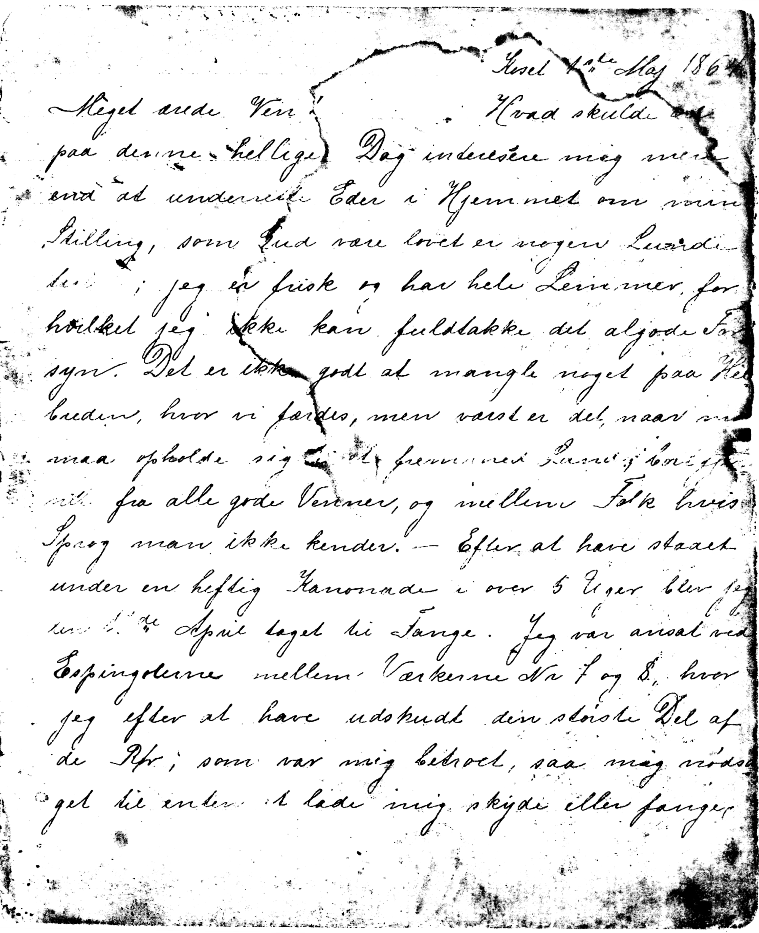 Kosel 1ste Maj 186
Meget ærede Ven! Hvad skulde
paa denne hellige Dag interesere mig mere
end at underrette Eder i Hjemmet om min
Stilling, som Gud være lovet er nogen Lunde
; jeg er frisk og har hele Lemmer, for
hvilket jeg ikke kan fuldtakke det algode For
syn. Det er ikke godt at mangle noget paa Hel
breden, hvor vi færdes, men værst er det, naar
maa opholde sig i et fremmed Land,
fra alle gode Venner, og mellem Folk hvis
Sprog man ikke kender. — Efter at have staaet
under en heftig Kanonade i over 5 Uger blev jeg
den de April taget til Fange. Jeg var ansat ved
Espingolerne mellem Værkerne Nr 7 og 8, hvor
jeg efter at have udskudt den største Del af
de Rør; som var mig betroet, saa mig nødsa
get til enten at lade mig skyde eller fange,